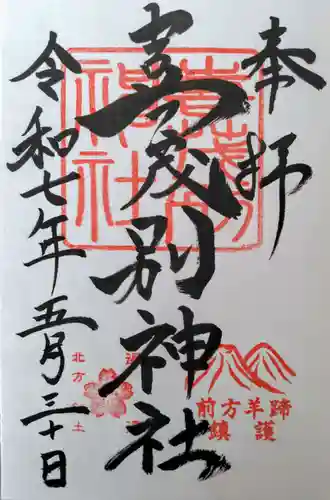 奉拝
喜茂別神社
令和七年五月三十日
前方羊蹄
鎮護
北方
土